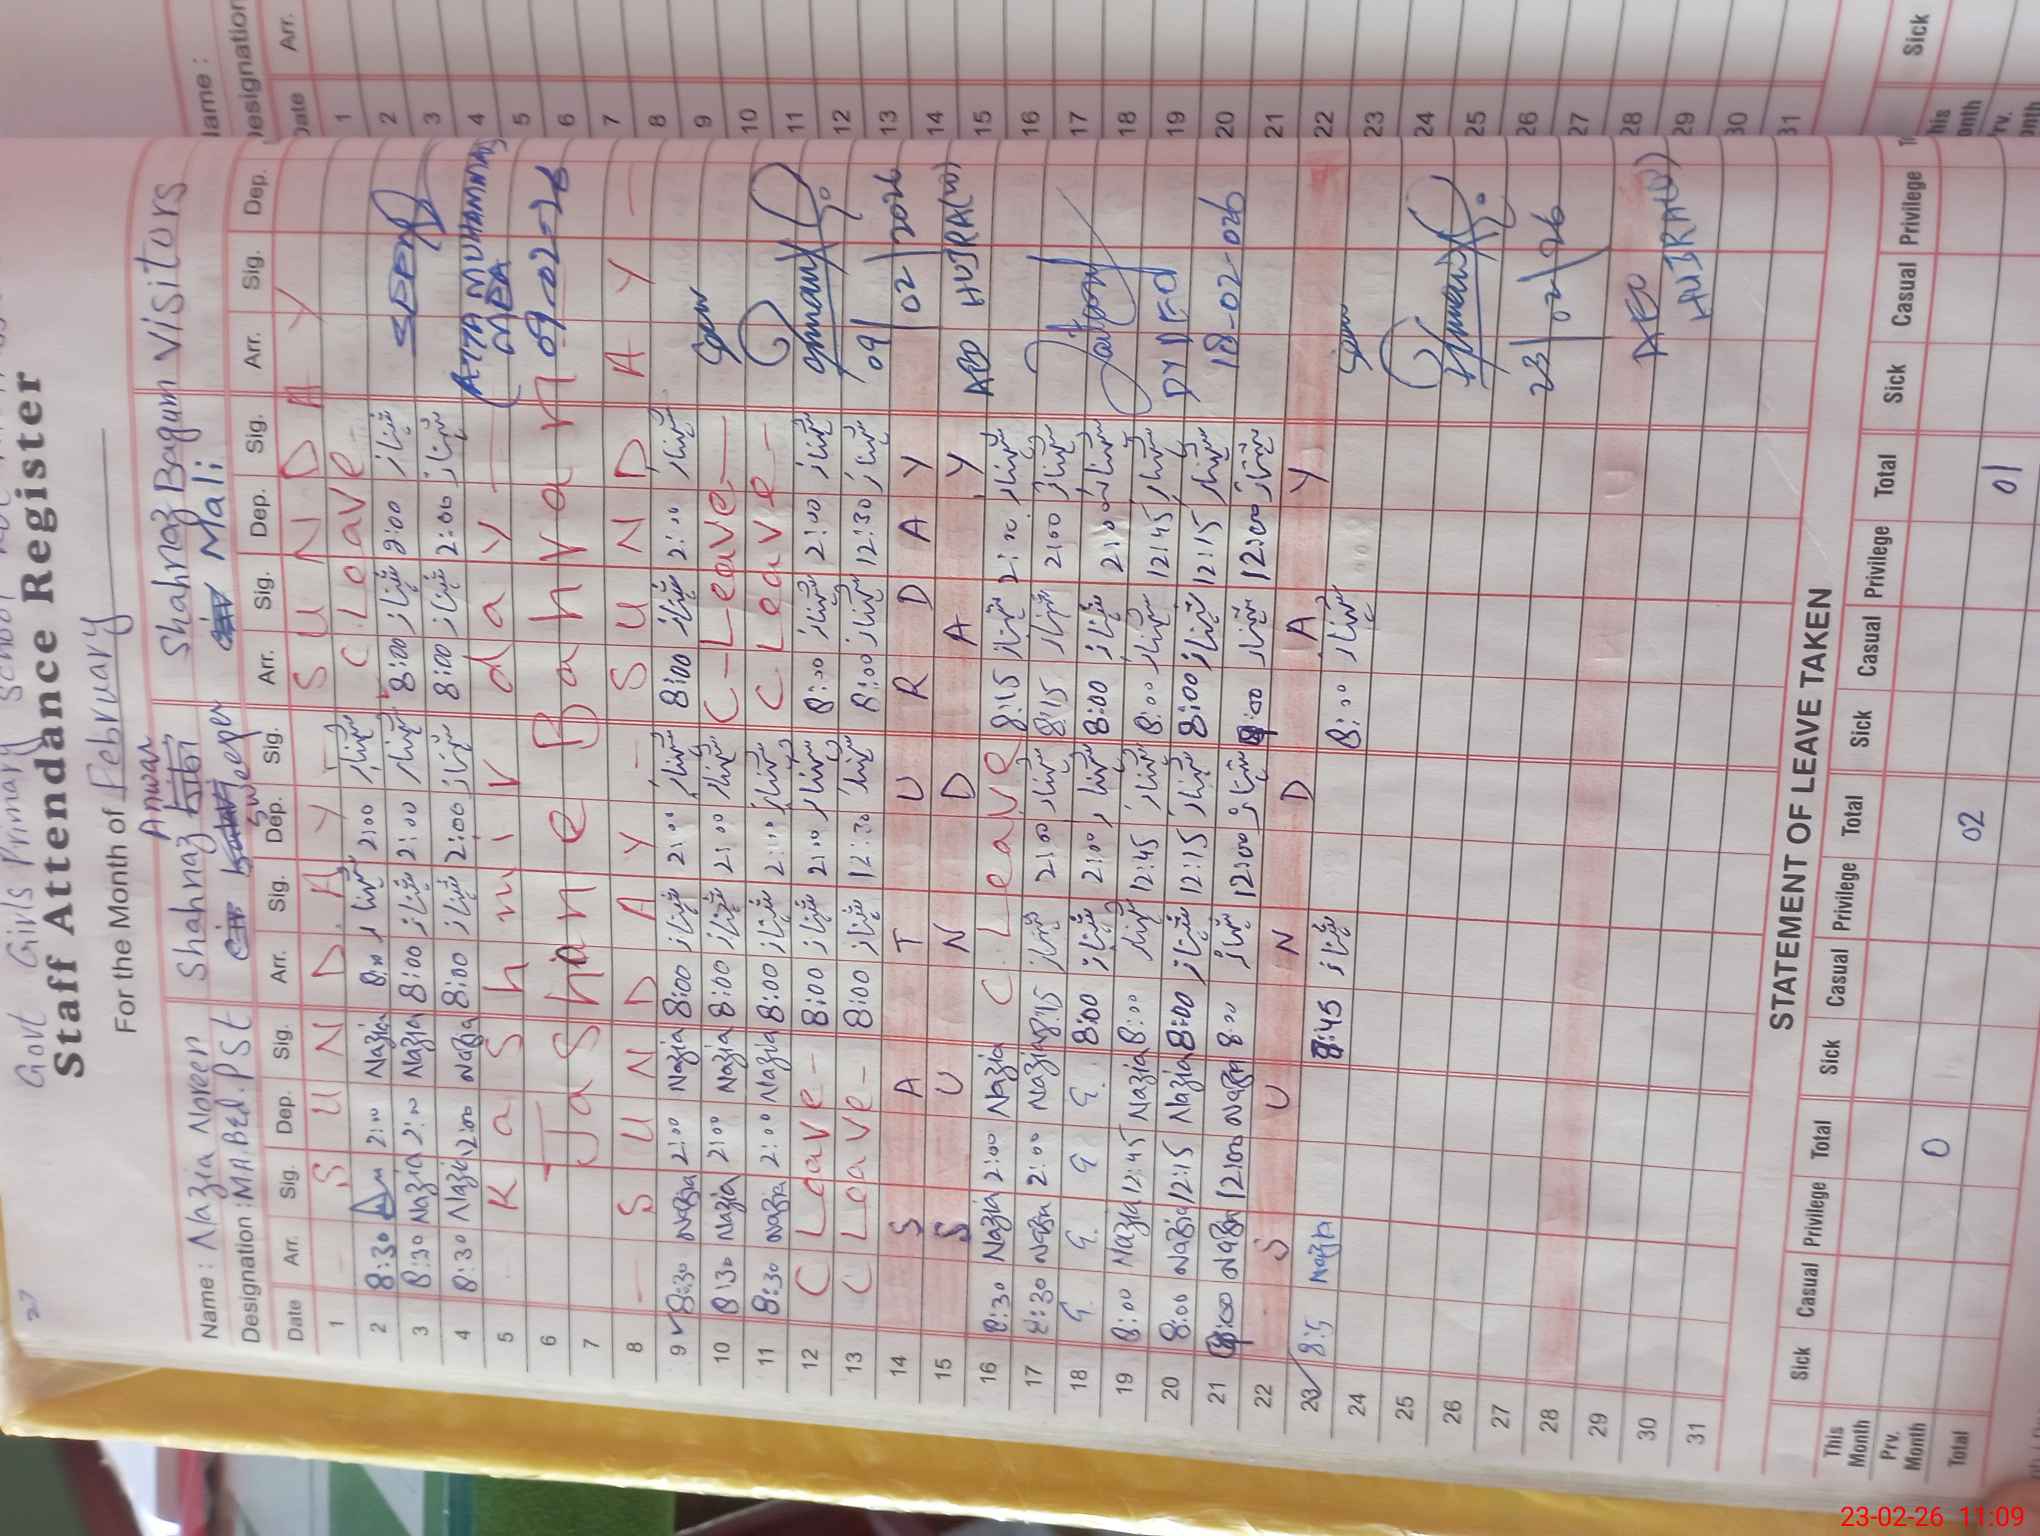 27
Govt Girls Primary School
Staff Attendance Register
For the Month of February
Name: Nazia Noreen
Shahnaz Anwar
Shahnaz Bagum
Visitors
Designation: M.A. Bed. PST
Sweeper
Mali
Date Arr. Sig. Dep. Sig. Arr. Sig. Dep. Sig. Arr. Sig. Dep. Sig. Arr. Sig. Dep.
1 SUNDAY SUNDAY
2 8:30 2:00 Nazia 8:00 شہناز 2:00 شہناز C. Leave
3 8:30 Nazia 2:00 Nazia 8:00 شہناز 2:00 شہناز 8:00 شہناز 2:00 شہناز
4 8:30 Nazia 2:00 Nazia 8:00 شہناز 2:00 شہناز 8:00 شہناز 2:00 شہناز
5 Kashmir day
6 Jashane Baharan
7
8 SUNDAY SUNDAY
9 8:30 Nazia 2:00 Nazia 8:00 شہناز 2:00 شہناز 8:00 شہناز 2:00 شہناز
10 8:30 Nazia 2:00 Nazia 8:00 شہناز 2:00 شہناز C-Leave
11 8:30 Nazia 2:00 Nazia 8:00 شہناز 2:00 شہناز C. Leave
12 C Leave 8:00 شہناز 2:00 شہناز 8:00 شہناز 2:00 شہناز
13 C Leave 8:00 شہناز 12:30 شہناز 8:00 شہناز 12:30 شہناز
14 SATURDAY
15 SUNDAY
16 8:30 Nazia 2:00 Nazia C. Leave 8:15 شہناز 2:00 شہناز
17 8:30 Nazia 2:00 Nazia 8:15 شہناز 2:00 شہناز 8:15 شہناز 2:00 شہناز
18 8:00 شہناز 2:00 شہناز 8:00 شہناز 2:00 شہناز
19 8:00 Nazia 12:45 Nazia 8:00 شہناز 12:45 شہناز 8:00 شہناز 12:45 شہناز
20 8:00 Nazia 12:15 Nazia 8:00 شہناز 12:15 شہناز 8:00 شہناز 12:15 شہناز
21 8:00 Nazia 12:00 Nazia 8:00 شہناز 12:00 شہناز 8:00 شہناز 12:00 شہناز
22 SUNDAY
23 8:5 Nazia 8:45 شہناز 8:00 شہناز
24
25
26
27
28
29
30
31
ATTA MUHAMMAD
09-02-26
09/02/2026
AEO HUJRA(W)
DY DEO
18-02-026
23/02/26
AEO
HUJRA(W)
STATEMENT OF LEAVE TAKEN
Sick Casual Privilege Total Sick Casual Privilege Total Sick Casual Privilege Total Sick Casual Privilege
This Month
Prv. Month
Total
0
02
01
Name:
Designation
Date Arr.
1
2
3
4
5
6
7
8
9
10
11
12
13
14
15
16
17
18
19
20
21
22
23
24
25
26
27
28
29
30
31
Sick
23-02-26 11:09